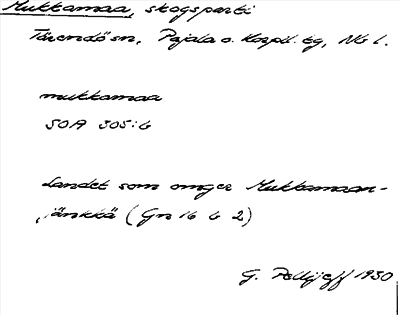 Mukkamaa, skogsparti
Tärendö sn, Pajala o. Korpil. tg, Nb l.
mukkamaa
SOA 305:6
Landet som omger Mukkamaan-
jänkkä (Gn 16 b 2)
G. Pellijeff 1980